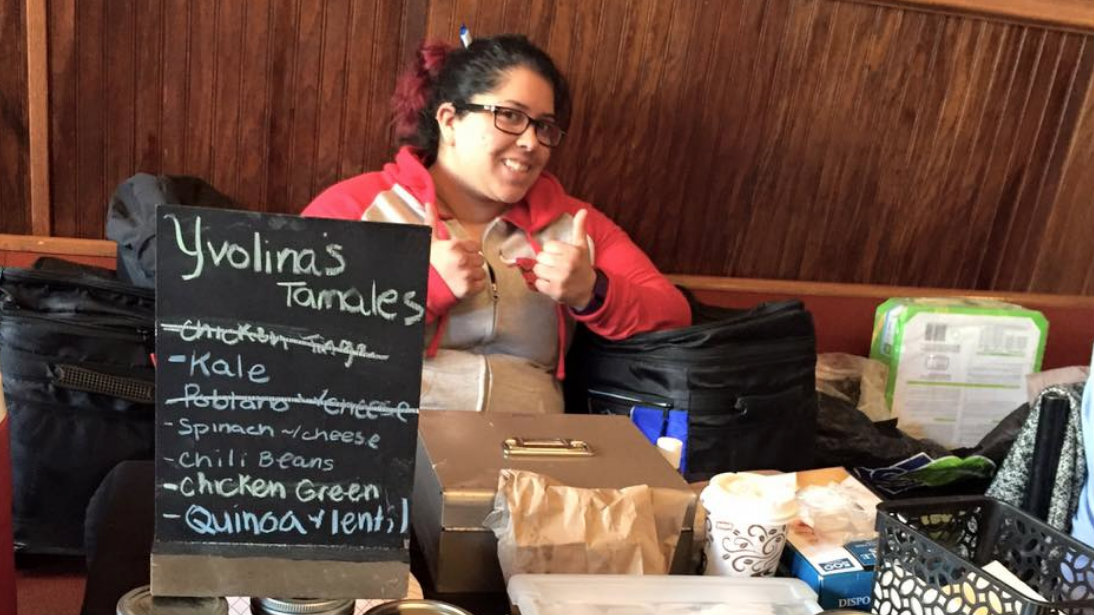 Yvolina's
Tamales
- Chicken Tinga
- Kale
- Poblano w/cheese
- Spinach w/cheese
- Chili Beans
- Chicken Green
- Quinoa & lentil
DISPO